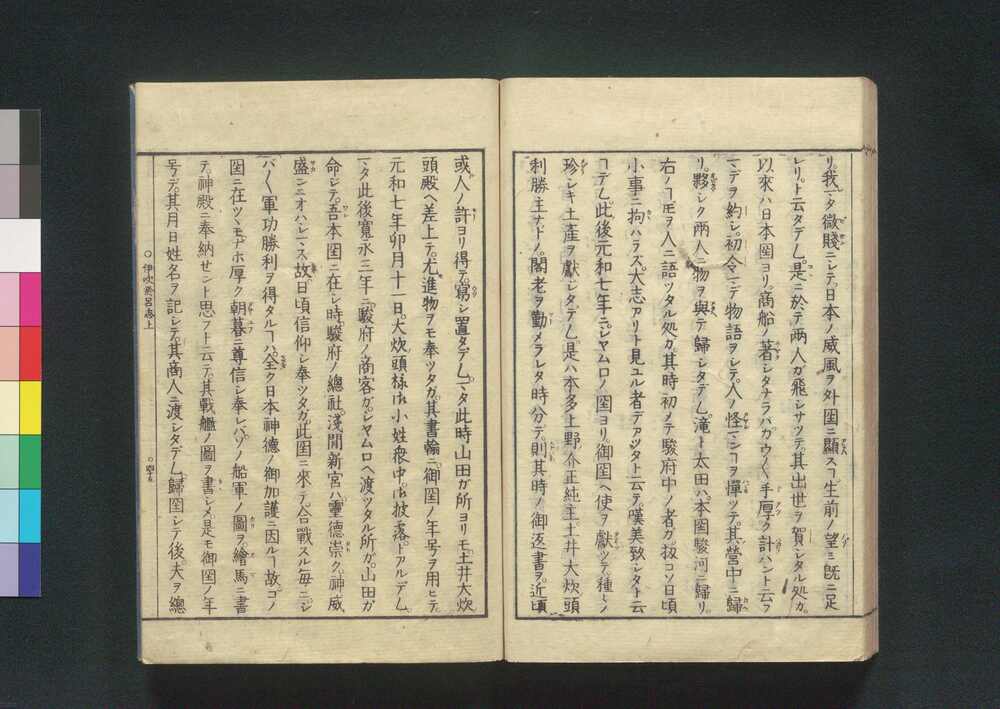 リ。我マタ微賤ニシテ。日本ノ威風ヲ外国ニ顯スヿ生前ノ望ミ既ニ足
レリ。ト云タデム。是ニ於テ両人ガ飛シサツテ。其出世ヲ賀シタル処ガ。
以來ハ日本国ヨリ。商船ノ著シタナラバガウ〳〵手厚ク計ハント云フ
マデヲ約シ。初令マデ物語ヲシテ。人ノ怪マンヿヲ憚ツテ。其營中ニ歸
リ。夥シク両人ニ物ヲ與テ歸シタデム。滝ト太田ハ本国駿河ニ歸リ。
右ノヿ𪜈ヲ人ニ語ツタル処ガ。其時初メテ駿府中ノ者ガ。扨コソ日頃
小事ニ拘ハラズ。大志アリト見ユル者デアツタト云テ嘆美致シタト云
ヿデム此後元和七年ニ。シヤムロノ国ヨリ。御国ヘ使ヲ獻ツテ種々ノ
珍シキ土産ヲ獻シタデム。是ハ本多上野介正純主土井大炊頭
利勝主ナドノ。閣老ヲ勤メラレタ時分デ。則其時ノ御返書ヲ。近頃
或人ノ許ヨリ得テ。寫シ置タデム。マタ此時山田ガ所ヨリモ。土井大炊
頭殿ヘ差上テ。尤進物ヲモ奉ツタガ。其書翰ニ。御国ノ年号ヲ用ヒテ。
元和七年卯月十一日。大炊頭様御小姓衆中。御披露。トアルデム
マタ此後寛永三年ニ。駿府ノ商客ガ。シヤムロヘ渡ツタル所ガ。山田ガ
命シテ。吾本国ニ在シ時駿府ノ總社。浅間新宮ハ。靈德崇ク。神威
盛ンニオハシマス故。日頃信仰シ奉ツタガ。此国ニ來テ。合戰スル毎ニ。シ
バ〳〵軍功勝利ヲ得タルヿハ。全ク日本神德ノ御加護ニ因ルヿ故。コノ
国ニ在ツヽモナホ厚ク朝暮ニ尊信シ奉レバ。ソノ船軍ノ圖ヲ。繪馬ニ書
テ。神殿ニ奉納セント思フト云テ。其戰艦ノ圖ヲ書シメ。是モ御国ノ年
号デ。其月日姓名ヲ記シテ。其商人ニ渡シタデム。歸国シテ後。夫ヲ總
○伊吹於呂志上